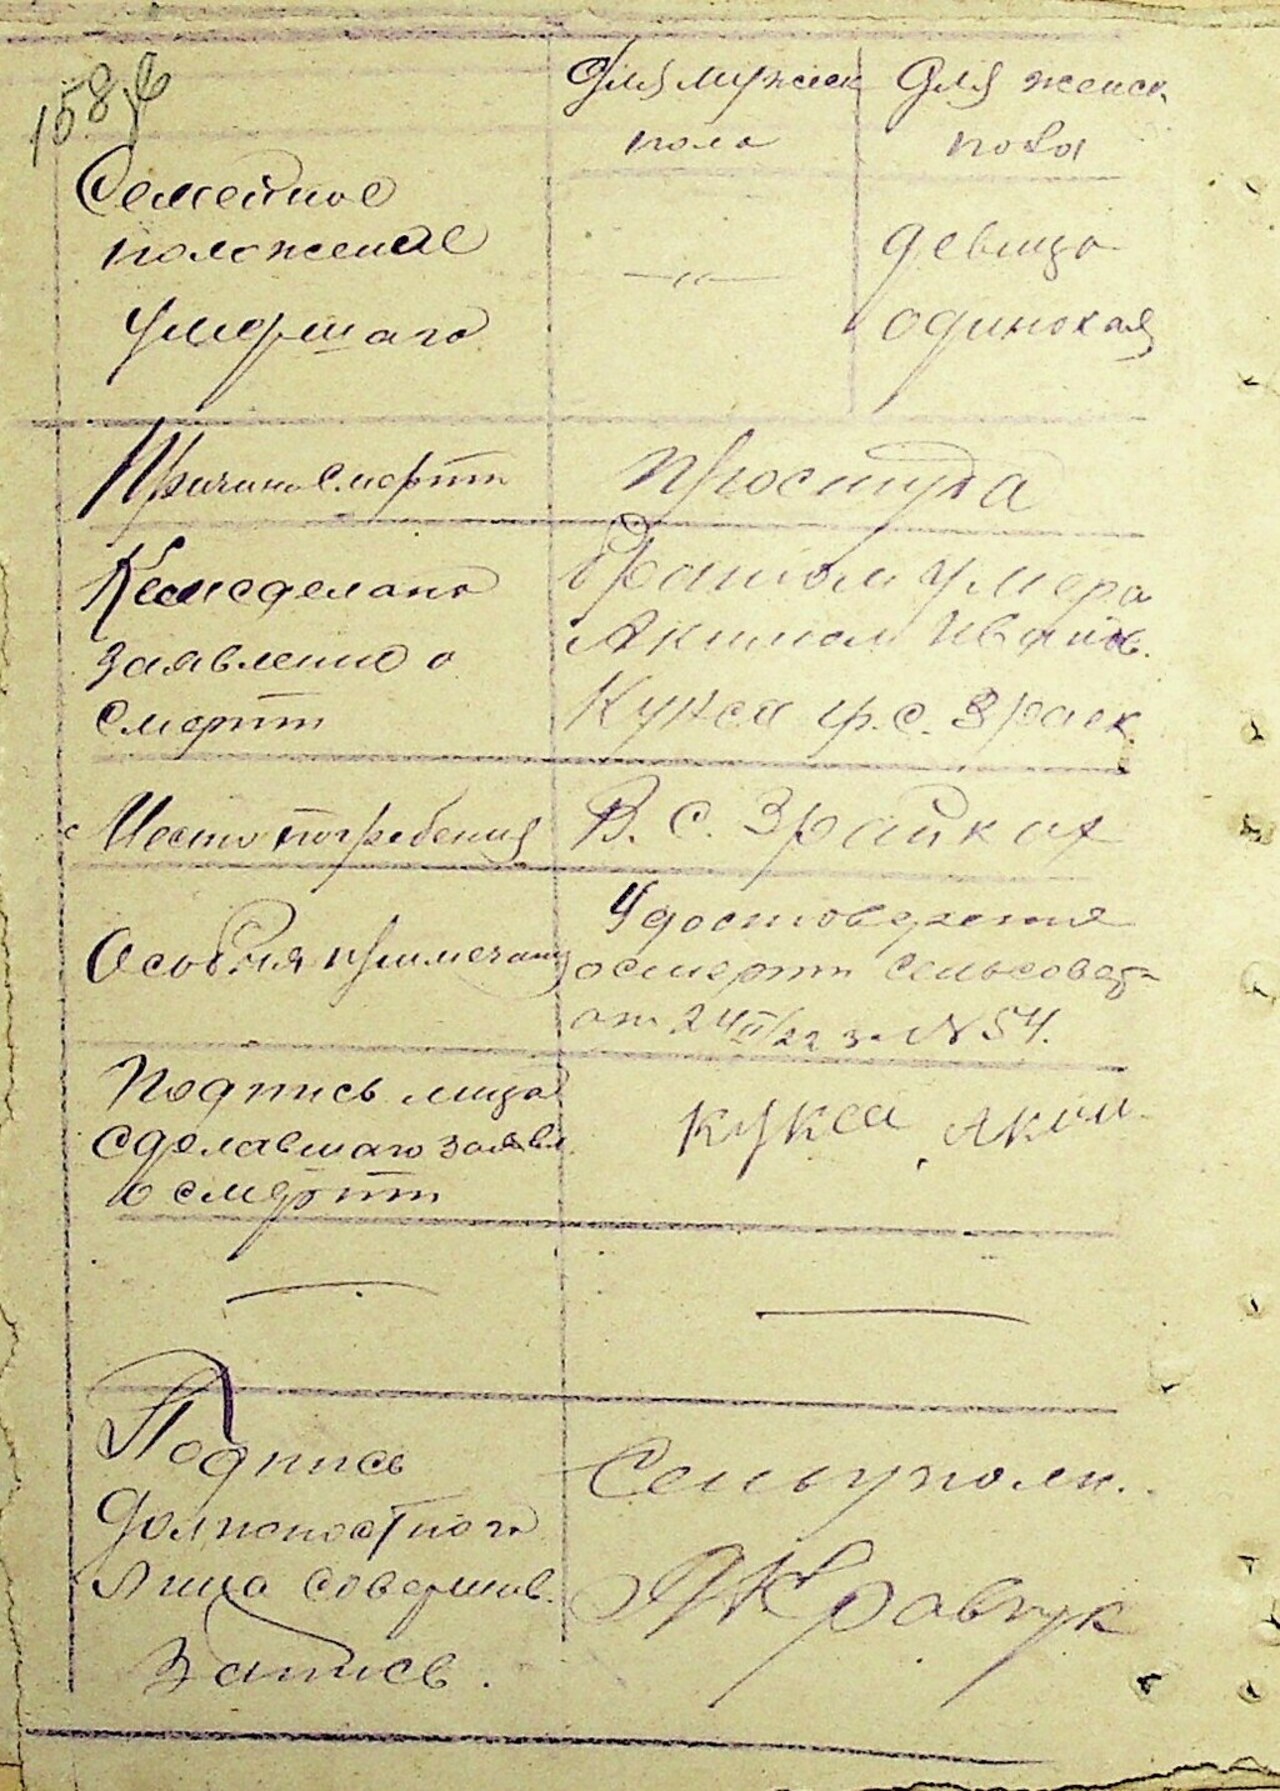 158
Для мужск Для женск.
пола пола
Семейное
положение девица
— „ —
умершаго одинокая
Причина смерти простуда
Кем сделано Братом умера
заявление о Акимом Иванов.
смерти Кукса гр. с. Зраек.
Место погребения В. С. Зрайках
Удостоверения
Особыя примечания о смерти сельсовета
от 24/II/22 за N 54.
Подпись лица
сделавшаго заявл. Кукса Аким
о смерти
Подпись Сельуполн.
Должностного
лица соверши́в. Кравчук
Запись.